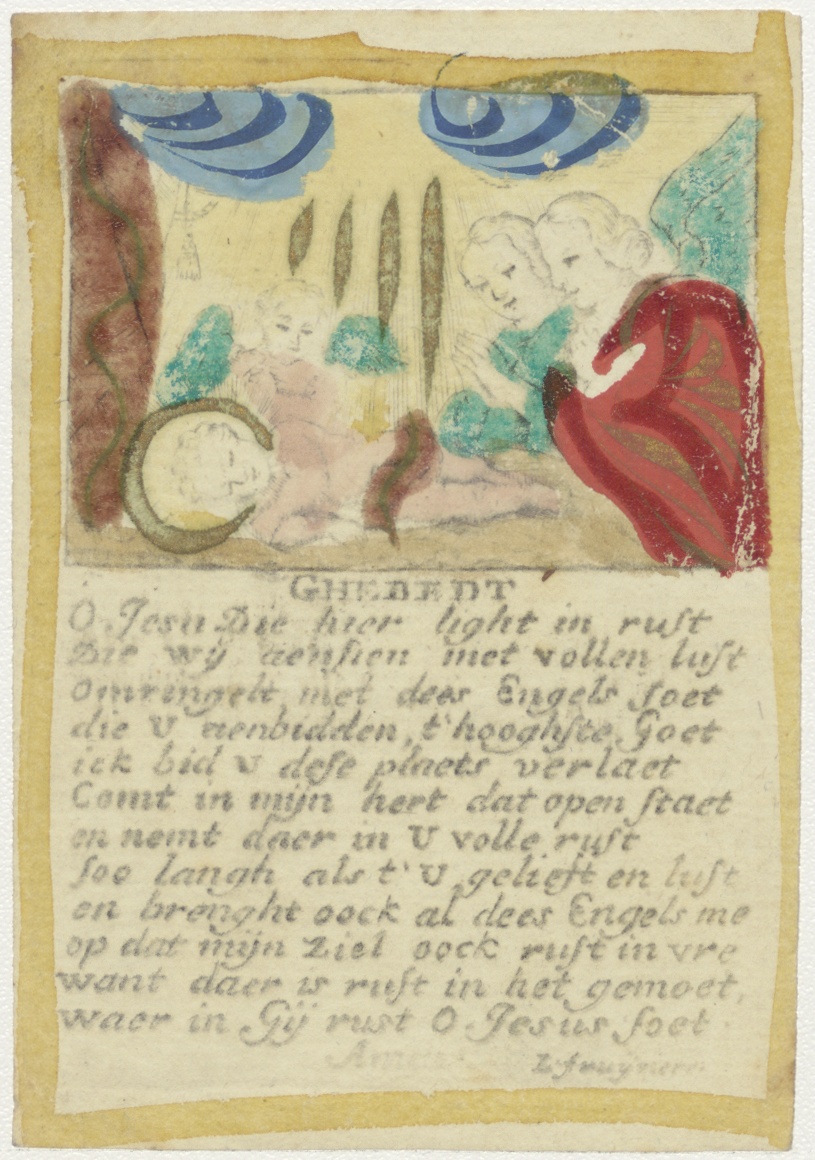 GHEBEDT
O Jesu Die hier light in rust
Die wij aensien met vollen lust
Omringelt met dees Engels soet
die U aenbidden, t'hooghste Goet
ick bid U dese plaets verlaet
Comt in mijn hert dat open staet
en nemt daer in U volle rust
soo langh als t'U gelieft en lust
en brenght oock al dees Engels me
op dat mijn Ziel oock rust in vre
want daer is rust in het gemoet,
waer in Gij rust O Jesus soet
Amen